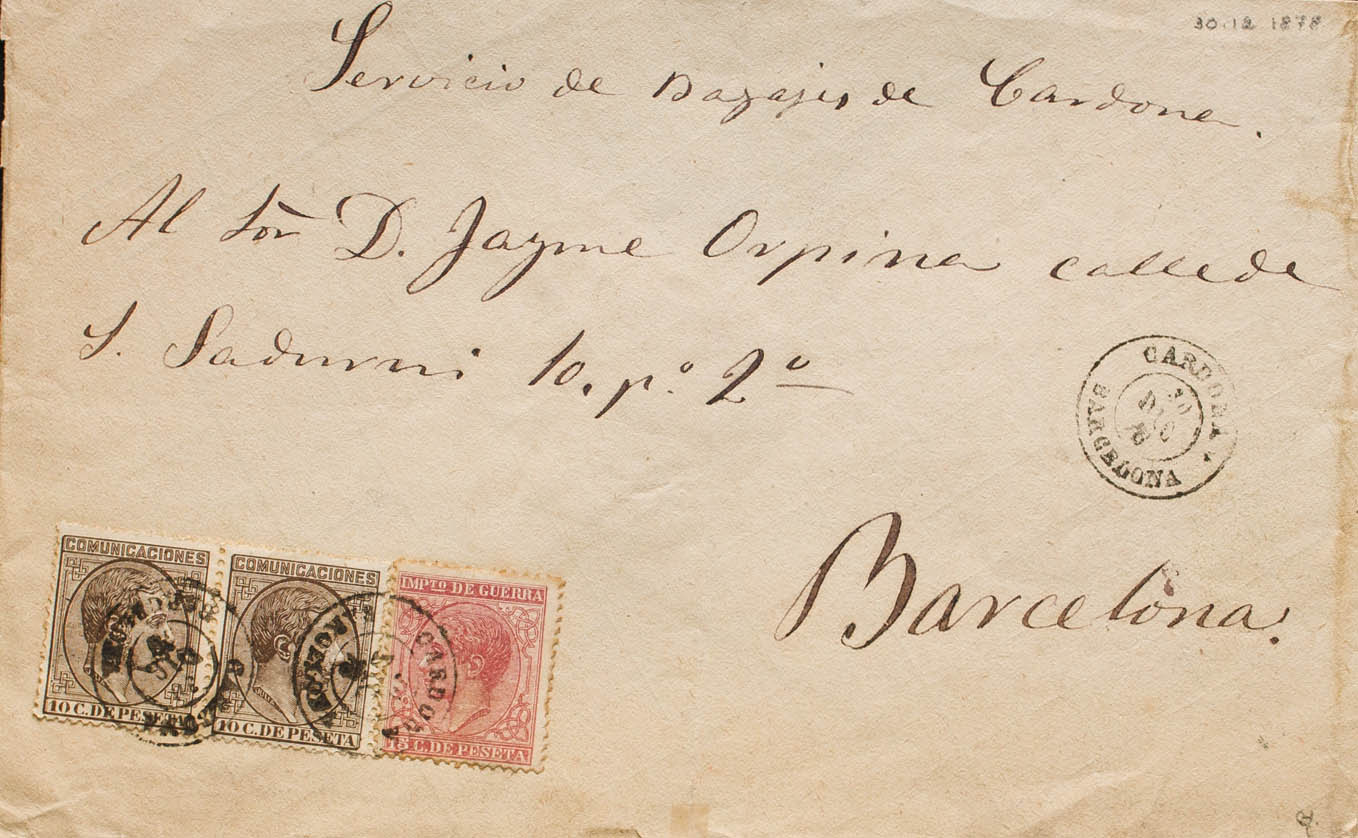 30.12 1878
Servicio de Bagajes de Cardona.
Al Sor D. Jayme Orpina calle de
S. Sadurni 10. po. 2o
CARDONA
30
DIC
78
BARCELONA
Barcelona.
COMUNICACIONES
10 C. DE PESETA
COMUNICACIONES
10 C. DE PESETA
IMPTO DE GUERRA
15 C. DE PESETA
CARDONA
BARCELONA